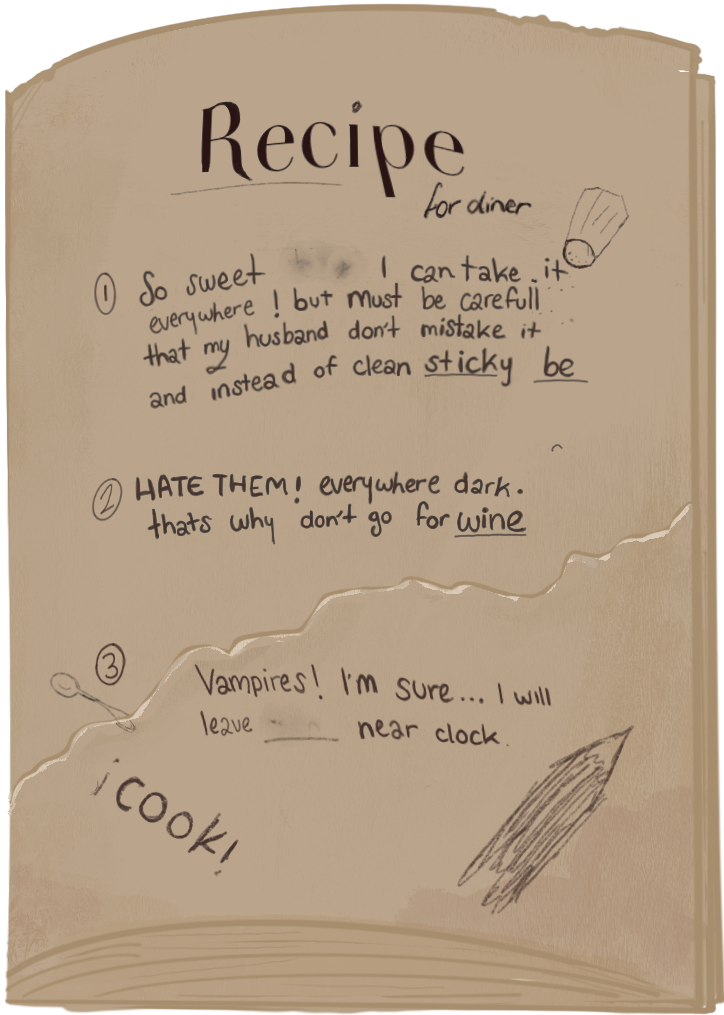 Recipe
for diner
① So sweet I can take it
everywhere! but must be carefull
that my husband don't mistake it
and instead of clean sticky be
② HATE THEM! everywhere dark.
thats why don't go for wine
③ Vampires! I'm sure... I will
leave near clock.
¡COOK!